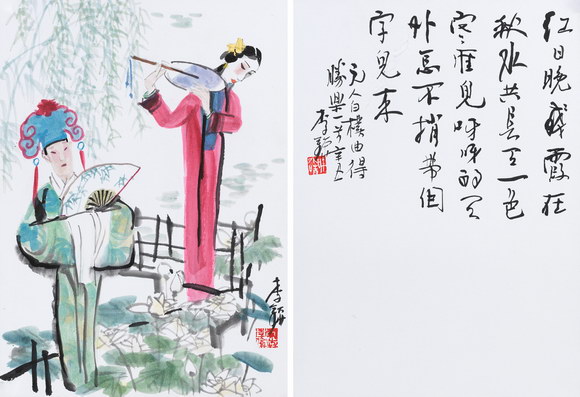 红日晚残霞在
秋水共長天一色
寒雁兒呀呀的天
外怎不捎带個
字兒来
元人白樸曲得
勝樂一首
李
李